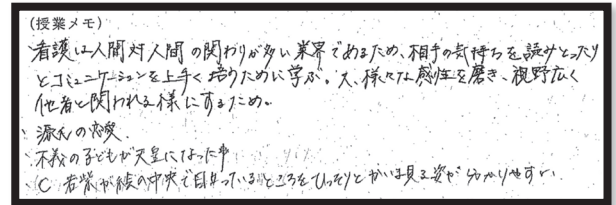 (授業メモ)
看護は人間対人間の関わりが多い業界であるため、相手の気持ちを読みとったり
とコミュニケーションを上手く培うために学ぶ。又、様々な感性を磨き、視野広く
他者と関われる様にするため。
源氏の
不義の子どもが天皇になった
若紫が絵の中央で目立っているところをひっそりとかいま見る姿が分かりやすい